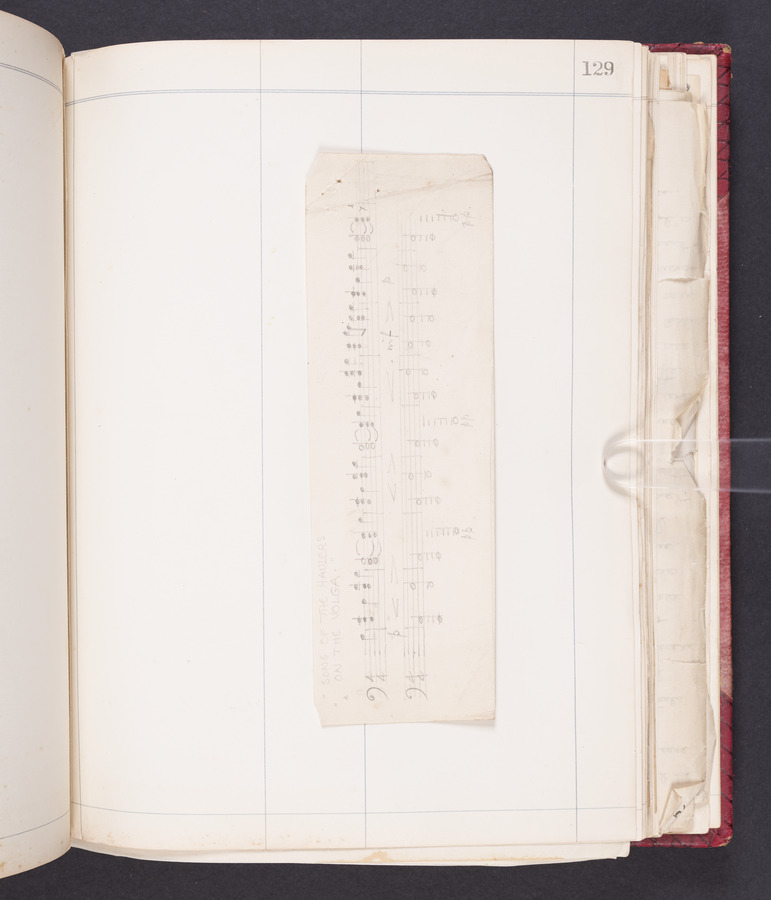 129
- SONG OF THE HAULERS
ON THE VOLGA. -
p
mf
p